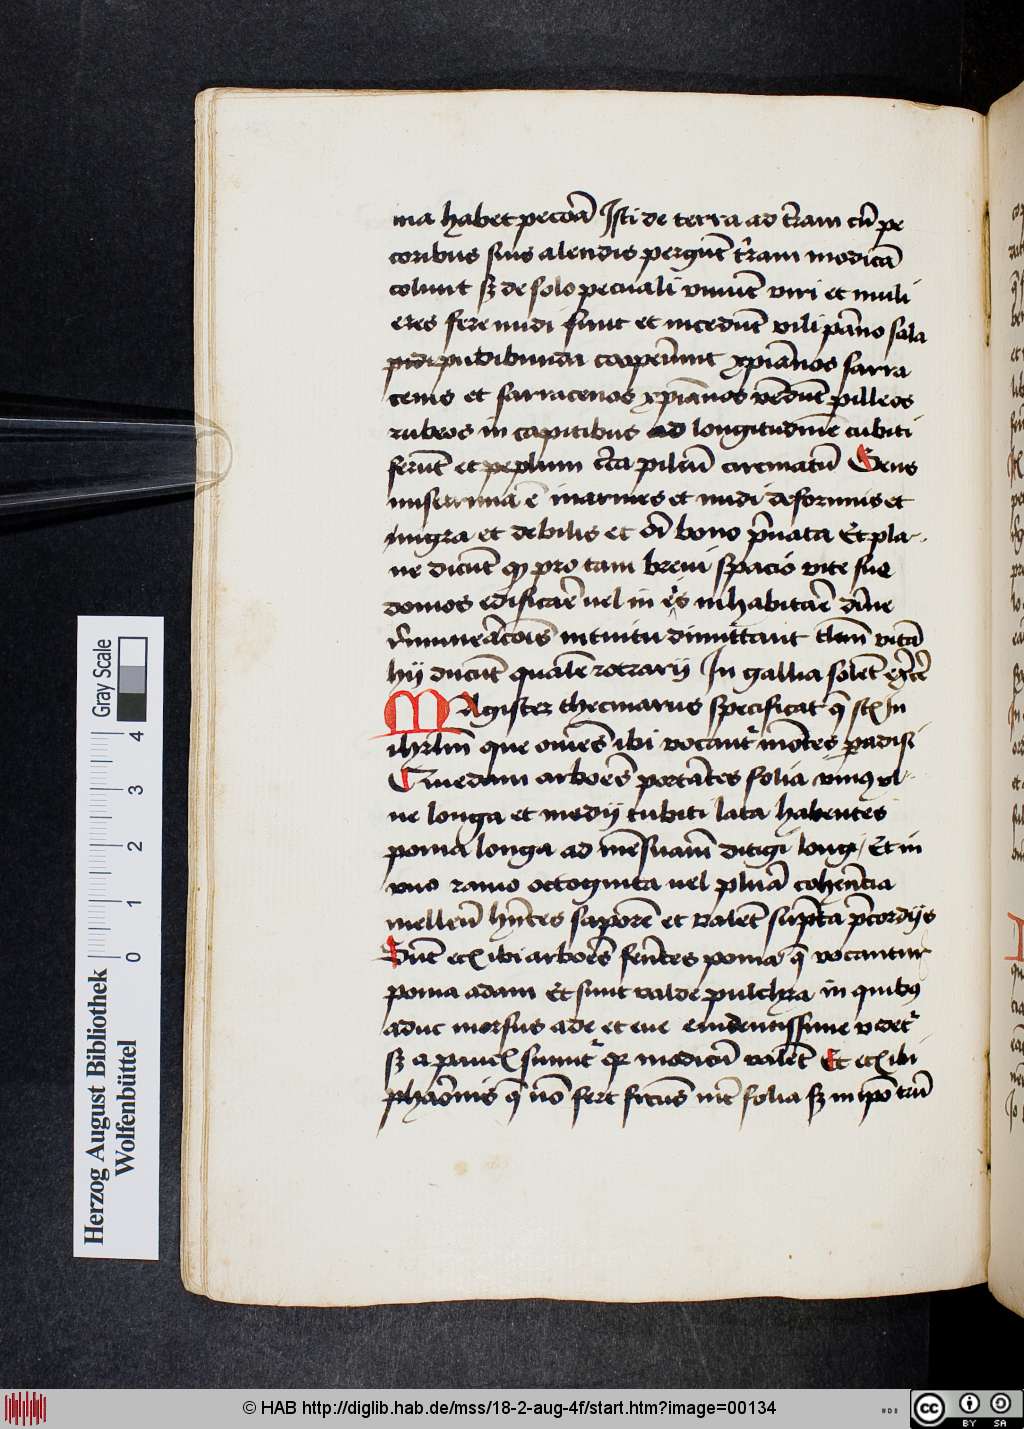 ma habet pecora Isti de terra ad t̄ram cū pe
coribus suis alendis pergūt t̄ram modicā
colunt sȝ de solo pecuali viuūt viri et muli
eres fere nudi sunt et incedūt vili pāno sola
pudibunda cooperiūt xp̄ianos sarra
cenis et sarracenos xp̄ianos vēdūt pilleos
rubeos in capitibus ad longitudinē cubiti
ferūt et peplum c̄ca pileū circinatū Gens
miserrima ē inarmes et nudi deformis et
nigra et debilis et oī bono p̄uata Et pla-
ne dicūt ꝙ pro tam breui spacio vite sue
domos edificare vel in eis inhabitare
intuitu dimittant vitā
hij ducūt qualē rotrarij In gallia solēt
MAgister thetmarus specificat
ihrlm que om̄es ibi vocant᷑ mōtes padisi
Quedam arbores portātes folia vniꝯ vl-
ne longa et medij cubiti lata habentes
poma longa ad mēsurā digiti longi Et in
vno ramo octoginta vel plura coherētia
melleū hn̄tes saporē et valēt
Sūt ibi arbores ferētes poma q̄ vocantur
poma adam Et sunt valde pulchra in quibꝯ
aduc morsus ade et eue euidentissime videt᷑
sȝ a paucis sumūt᷑ qꝛ modicū valēt Et ibi
pharonis q̄ nō fert ficus nec folia sȝ in ip̄o trū
Herzog August Bibliothek
Wolfenbüttel
Gray Scale
0 1 2 3 4
© HAB http://diglib.hab.de/mss/18-2-aug-4f/start.htm?image=00134
cc
BY SA